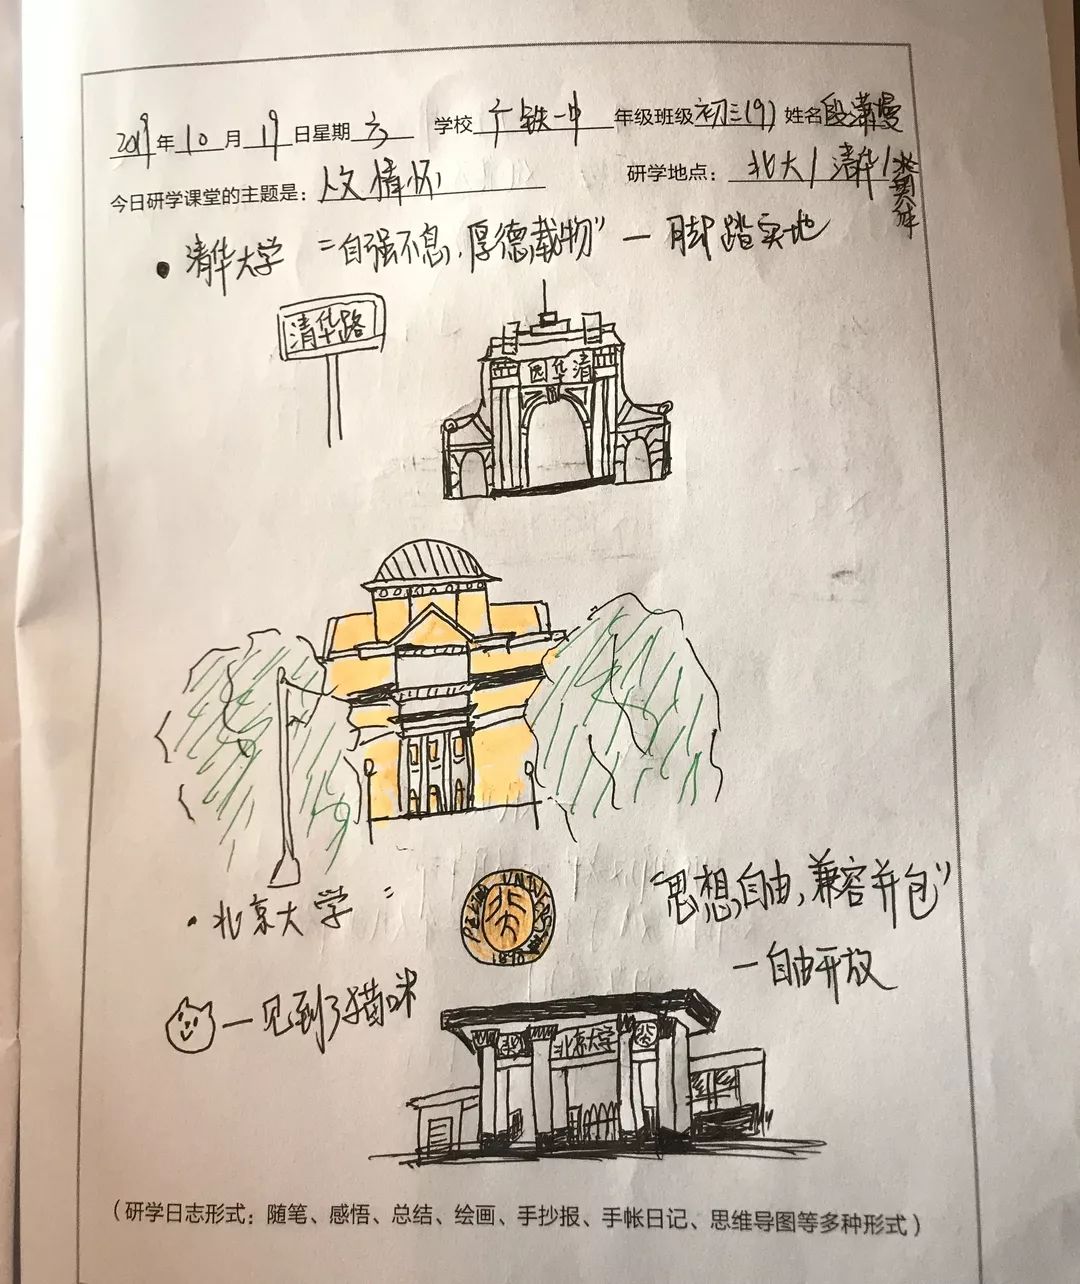 2019年10月19日星期六 学校广铁一中年级班级初三(9)姓名段潇曼
今日研学课堂的主题是：人文情怀 研学地点：北大/清华/
• 清华大学 "自强不息，厚德载物"—脚踏实地
清华路
园华清
• 北京大学
"思想自由，兼容并包"
—自由开放
—见到了猫咪
北京大学
（研学日志形式：随笔、感悟、总结、绘画、手抄报、手帐日记、思维导图等多种形式）